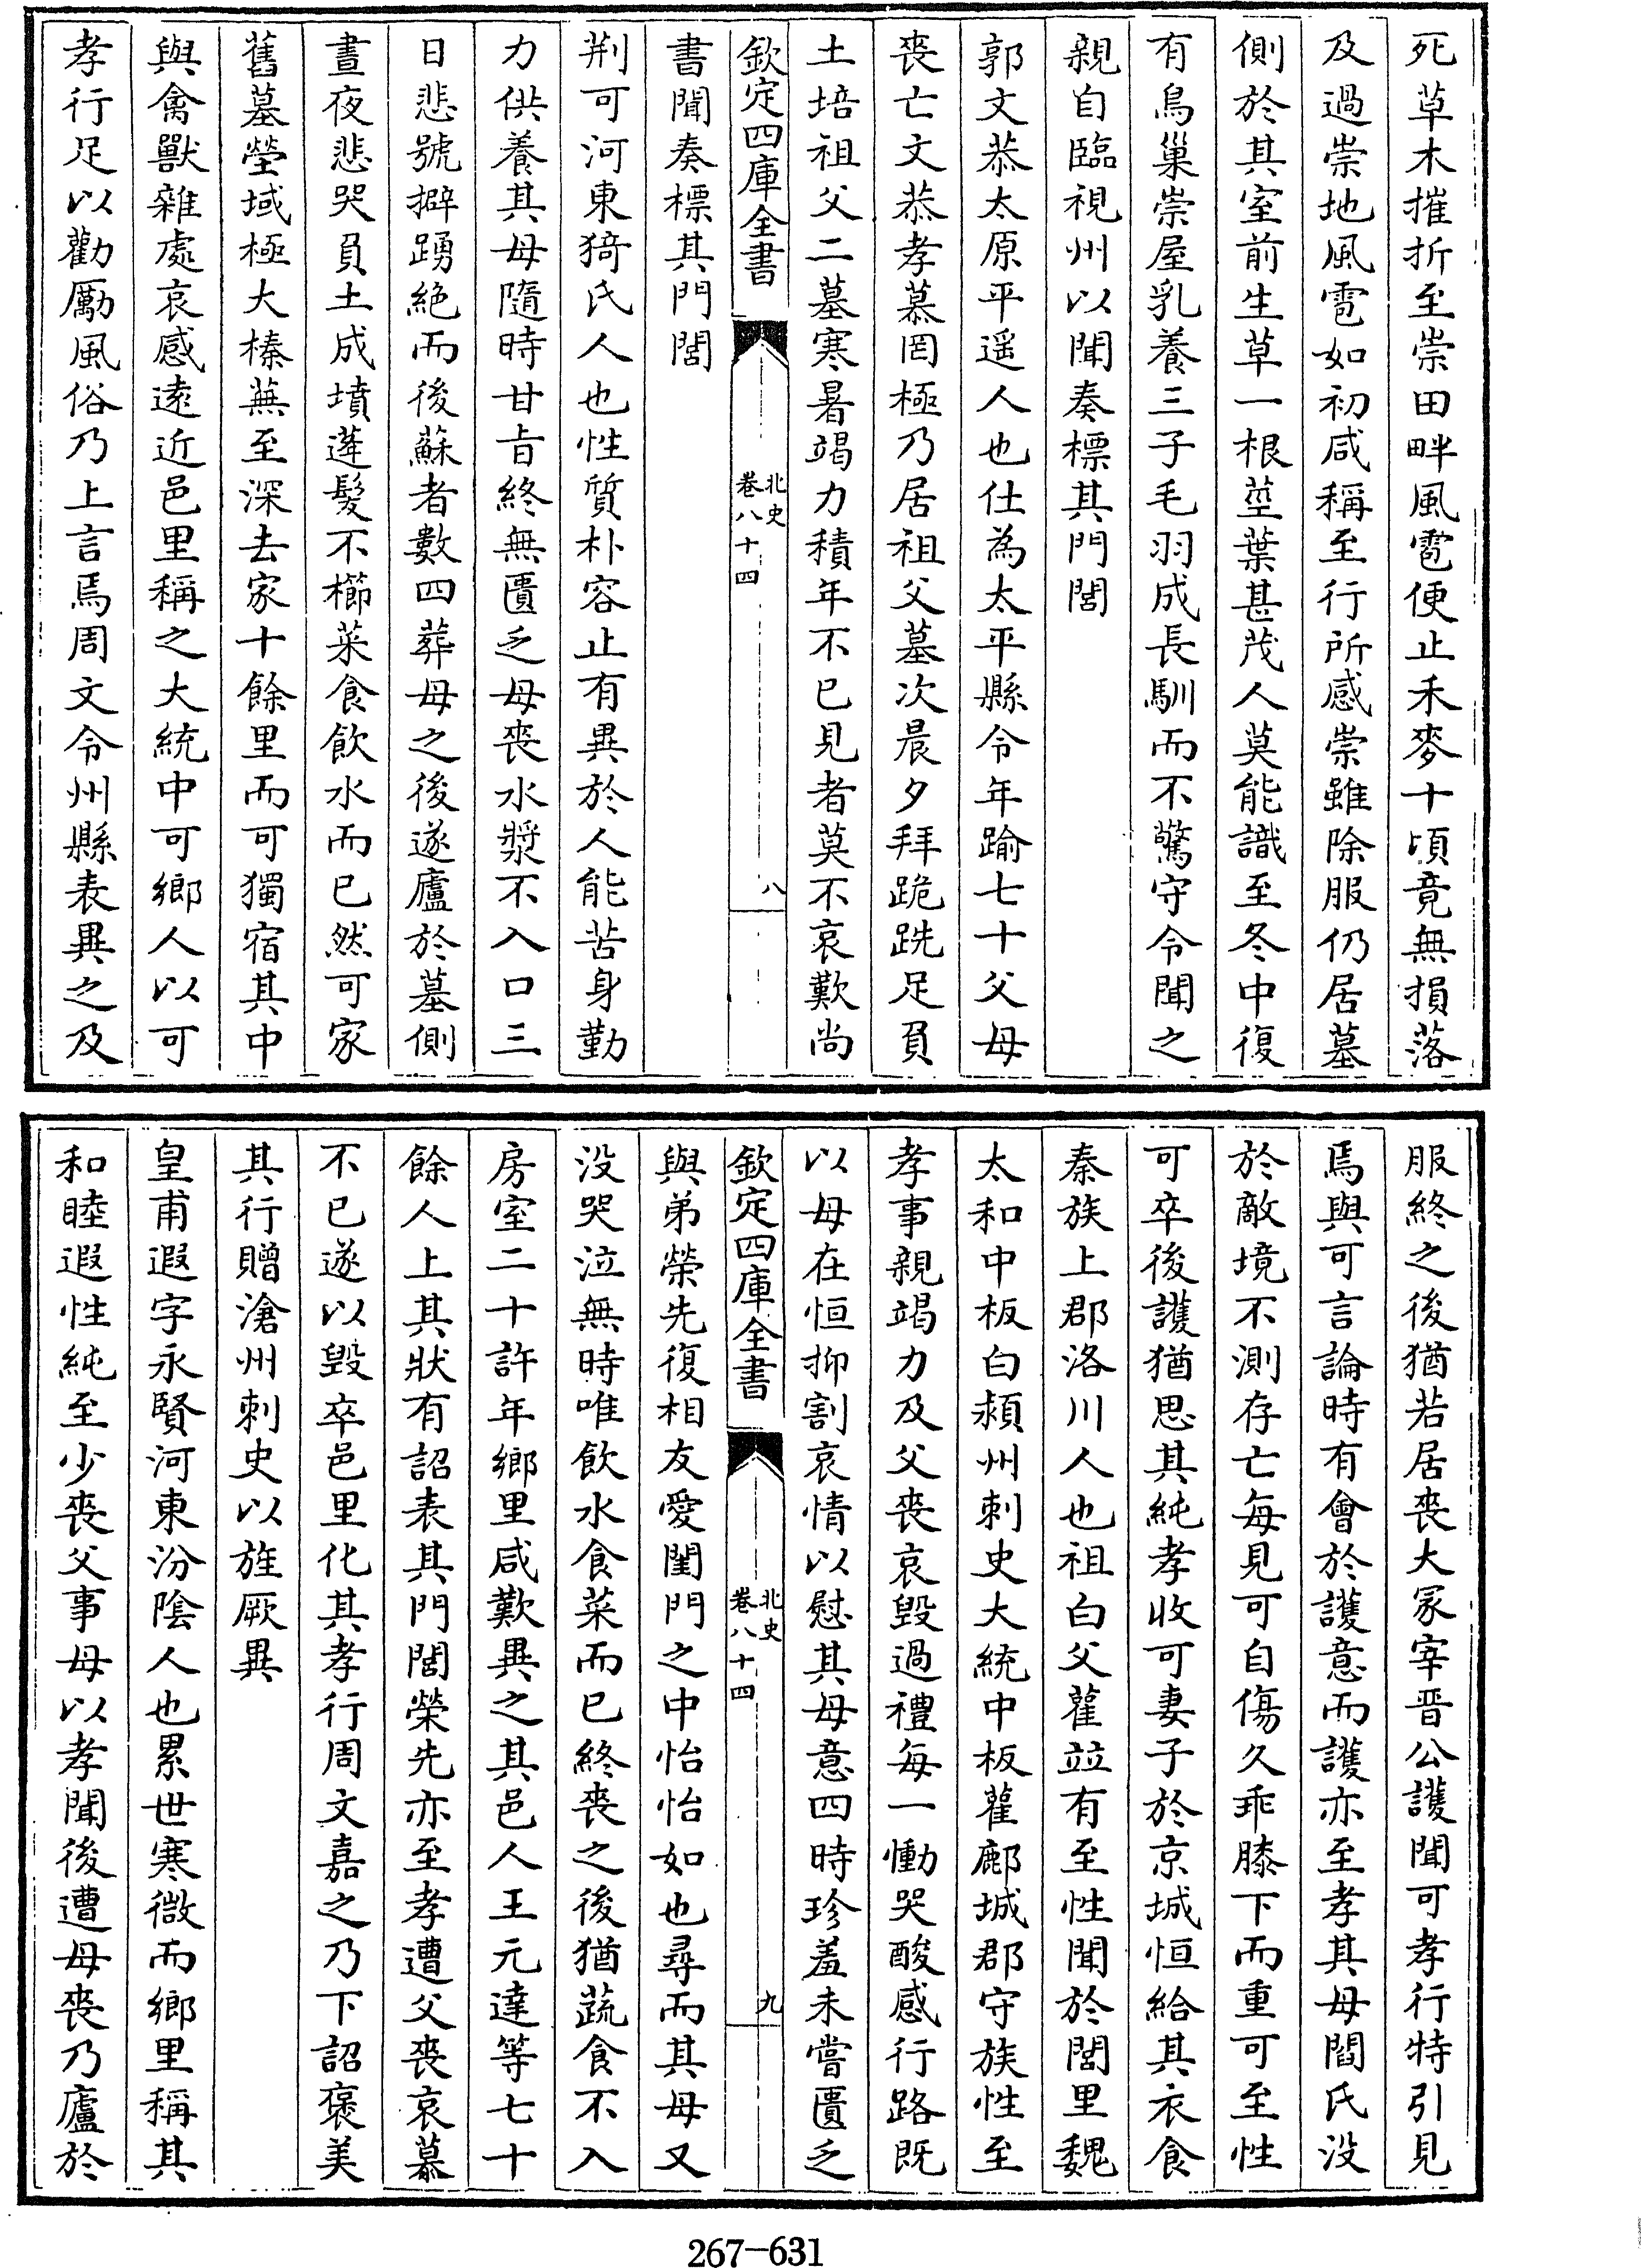 死草木摧折至崇田畔風雹便止禾麥十頃竟無損落
及過崇地風雹如初咸稱至行所感崇雖除服仍居墓
側於其室前生草一根莖葉甚茂人莫能識至冬中復
有鳥巢崇屋乳養三子毛羽成長馴而不驚守令聞之
親自臨視州以聞奏標其門閭
郭文恭太原平遥人也仕為太平縣令年踰七十父母
喪亡文恭孝慕罔極乃居祖父墓次晨夕拜跪跣足負
土培祖父二墓寒暑竭力積年不已見者莫不哀歎尚
欽定四庫全書
北史
卷八十四
八
書聞奏標其門閭
荆可河東猗氏人也性質朴容止有異於人能苦身勤
力供養其母隨時甘旨終無匱乏母喪水漿不入口三
日悲號擗踴絶而後蘇者數四葬母之後遂廬於墓側
晝夜悲哭負土成墳蓬髮不櫛菜食飲水而已然可家
舊墓塋域極大榛蕪至深去家十餘里而可獨宿其中
與禽獸雜處哀感遠近邑里稱之大統中可鄉人以可
孝行足以勸勵風俗乃上言焉周文令州縣表異之及
服終之後猶若居喪大冢宰晉公護聞可孝行特引見
焉與可言論時有會於護意而護亦至孝其母閻氏没
於敵境不測存亡每見可自傷久乖膝下而重可至性
可卒後護猶思其純孝收可妻子於京城恒給其衣食
秦族上郡洛川人也祖白父雚竝有至性聞於閭里魏
太和中板白潁州刺史大統中板雚鄜城郡守族性至
孝事親竭力及父喪哀毁過禮每一慟哭酸感行路既
以母在恒抑割哀情以慰其母意四時珍羞未嘗匱乏
欽定四庫全書
北史
卷八十四
九
與弟榮先復相友愛閨門之中怡怡如也尋而其母又
没哭泣無時唯飲水食菜而已終喪之後猶蔬食不入
房室二十許年鄉里咸歎異之其邑人王元達等七十
餘人上其狀有詔表其門閭榮先亦至孝遭父喪哀慕
不已遂以毁卒邑里化其孝行周文嘉之乃下詔褒美
其行贈滄州刺史以旌厥異
皇甫遐字永賢河東汾陰人也累世寒微而鄉里稱其
和睦遐性純至少喪父事母以孝聞後遭母喪乃廬於
267-631